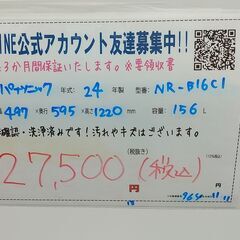 INE公式アカウント友達募集中!!
3か月間保証いたします。※要領収書
パナソニック 年式: 24 年製 型番: NR-B16C1
497 ×奥行 595 ×高さ 1220 mm 容量: 156L
確認・洗浄済みです!汚れやキズはございます。
(税抜き)
27,500 (税込)
円
円